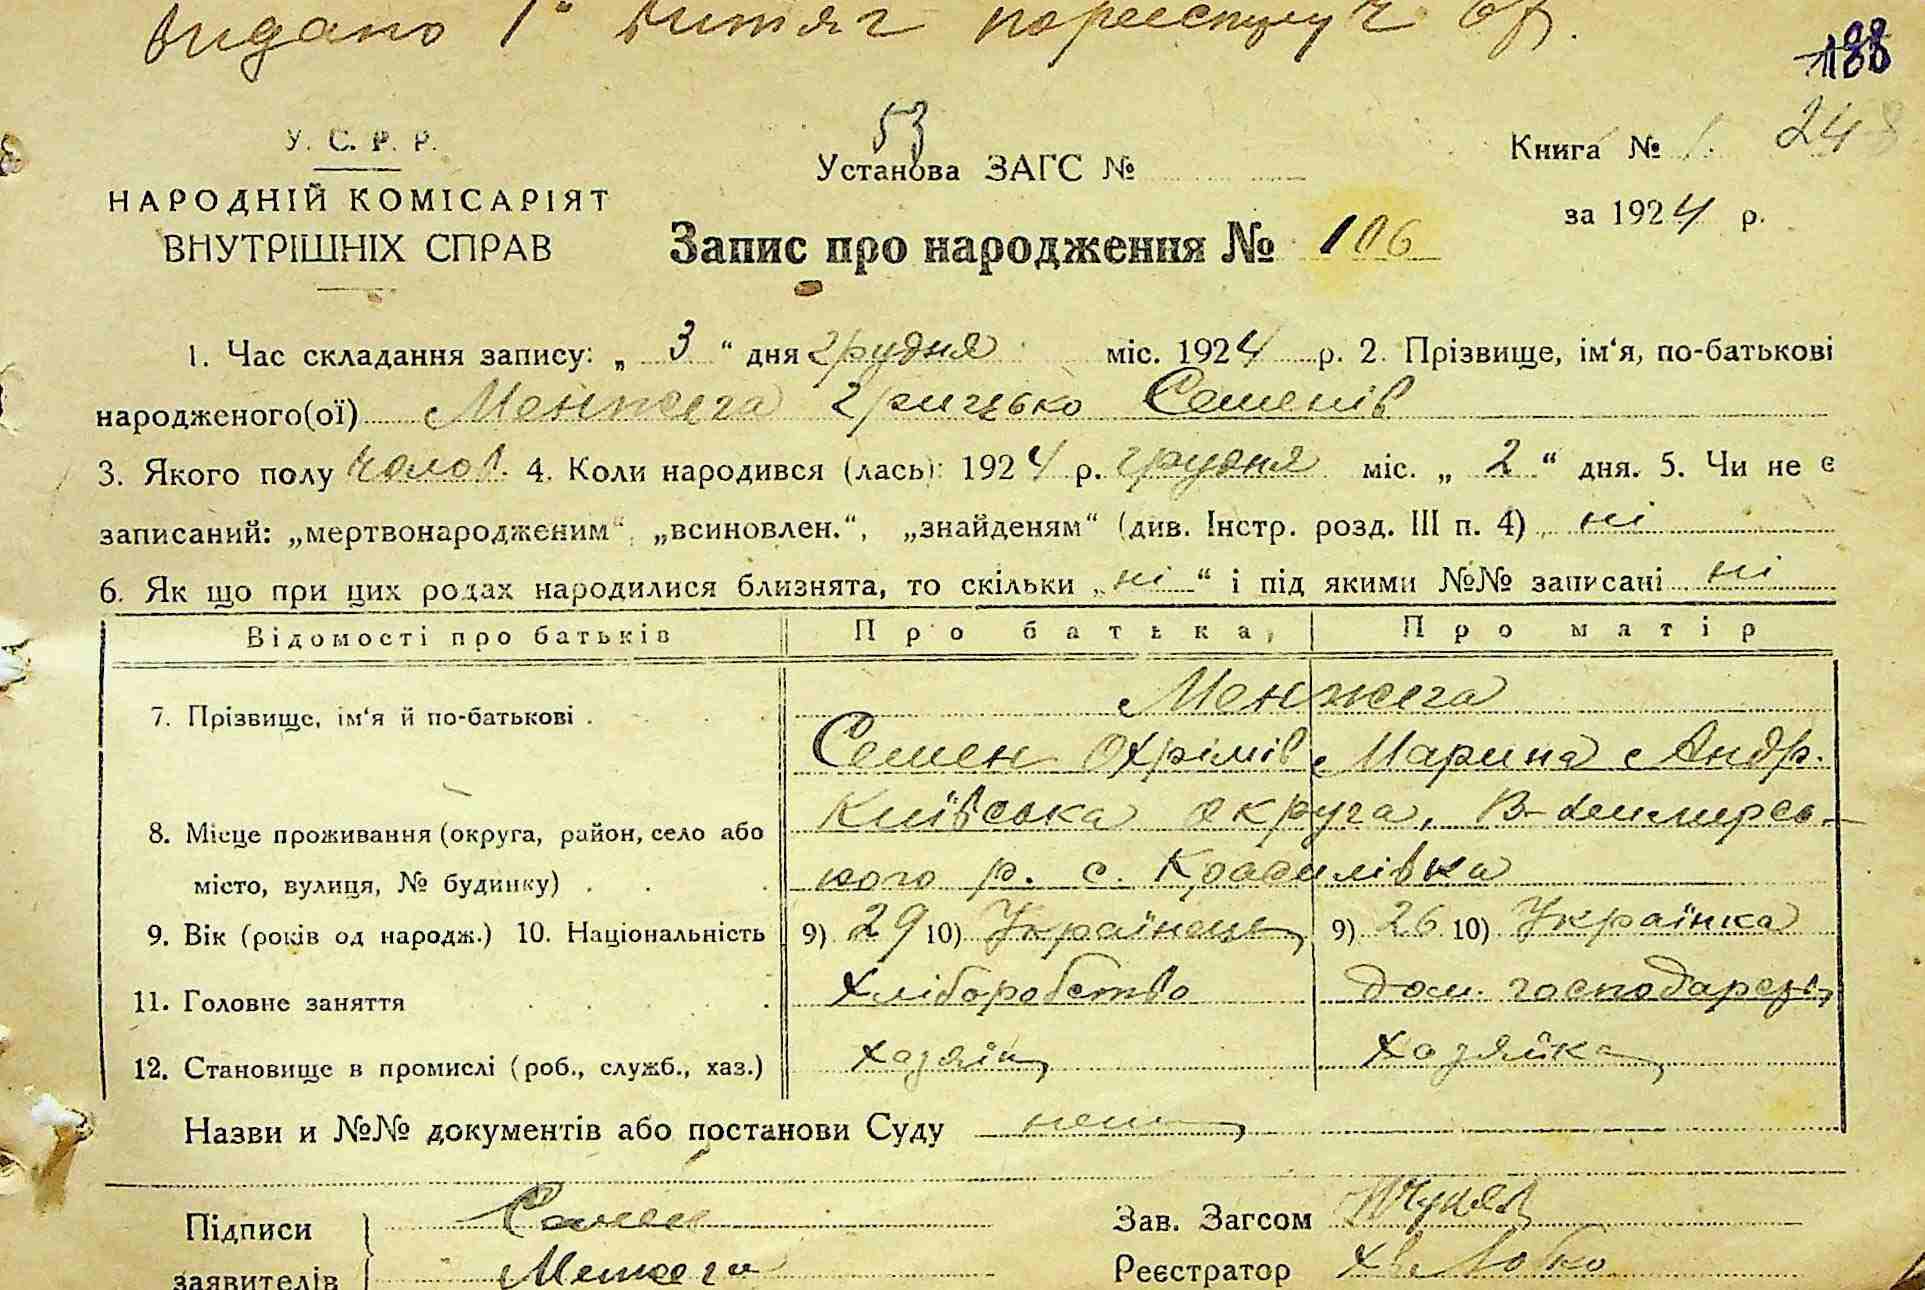 видано 1ᵃ витяг
188
У. С. Р. Р.
НАРОДНІЙ КОМІСАРІЯТ
ВНУТРІШНІХ СПРАВ
53
Установа ЗАГС №
Книга № 1. 248
за 1924 р.
Запис про народження № 106
1. Час складання запису: „ 3 “ дня грудня міс. 1924 р. 2. Прізвище, ім‘я, по-батькові
народженого(ої) Менжега Грицько Семенів
3. Якого полу чолов. 4. Коли народився (лась): 1924 р. грудня міс. „ 2 “ дня. 5. Чи не є
записаний: „мертвонародженим“, „всиновлен.“, „знайденям“ (див. Інстр. розд. III п. 4) ні
6. Як що при цих родах народилися близнята, то скільки „ ні “ і під якими №№ записані ні
Відомості про батьків Про батька, Про матір
7. Прізвище, ім‘я й по-батькові . Менжега
Семен Охрімів Марина Андр.
8. Місце проживання (округа, район, село або Київська округа, В-Димирсь-
місто, вулиця, № будинку) . кого р. с. Красилівка
9. Вік (років од народж.) 10. Національність 9) 29 10) Українець 9) 26 10) Українка
11. Головне заняття хліборобство дом. господарст.
12. Становище в промислі (роб., служб., хаз.) хазяїн хазяйка
Назви и №№ документів або постанови Суду нема
Підписи Семен Зав. Загсом
заявителів Менжега Реєстратор